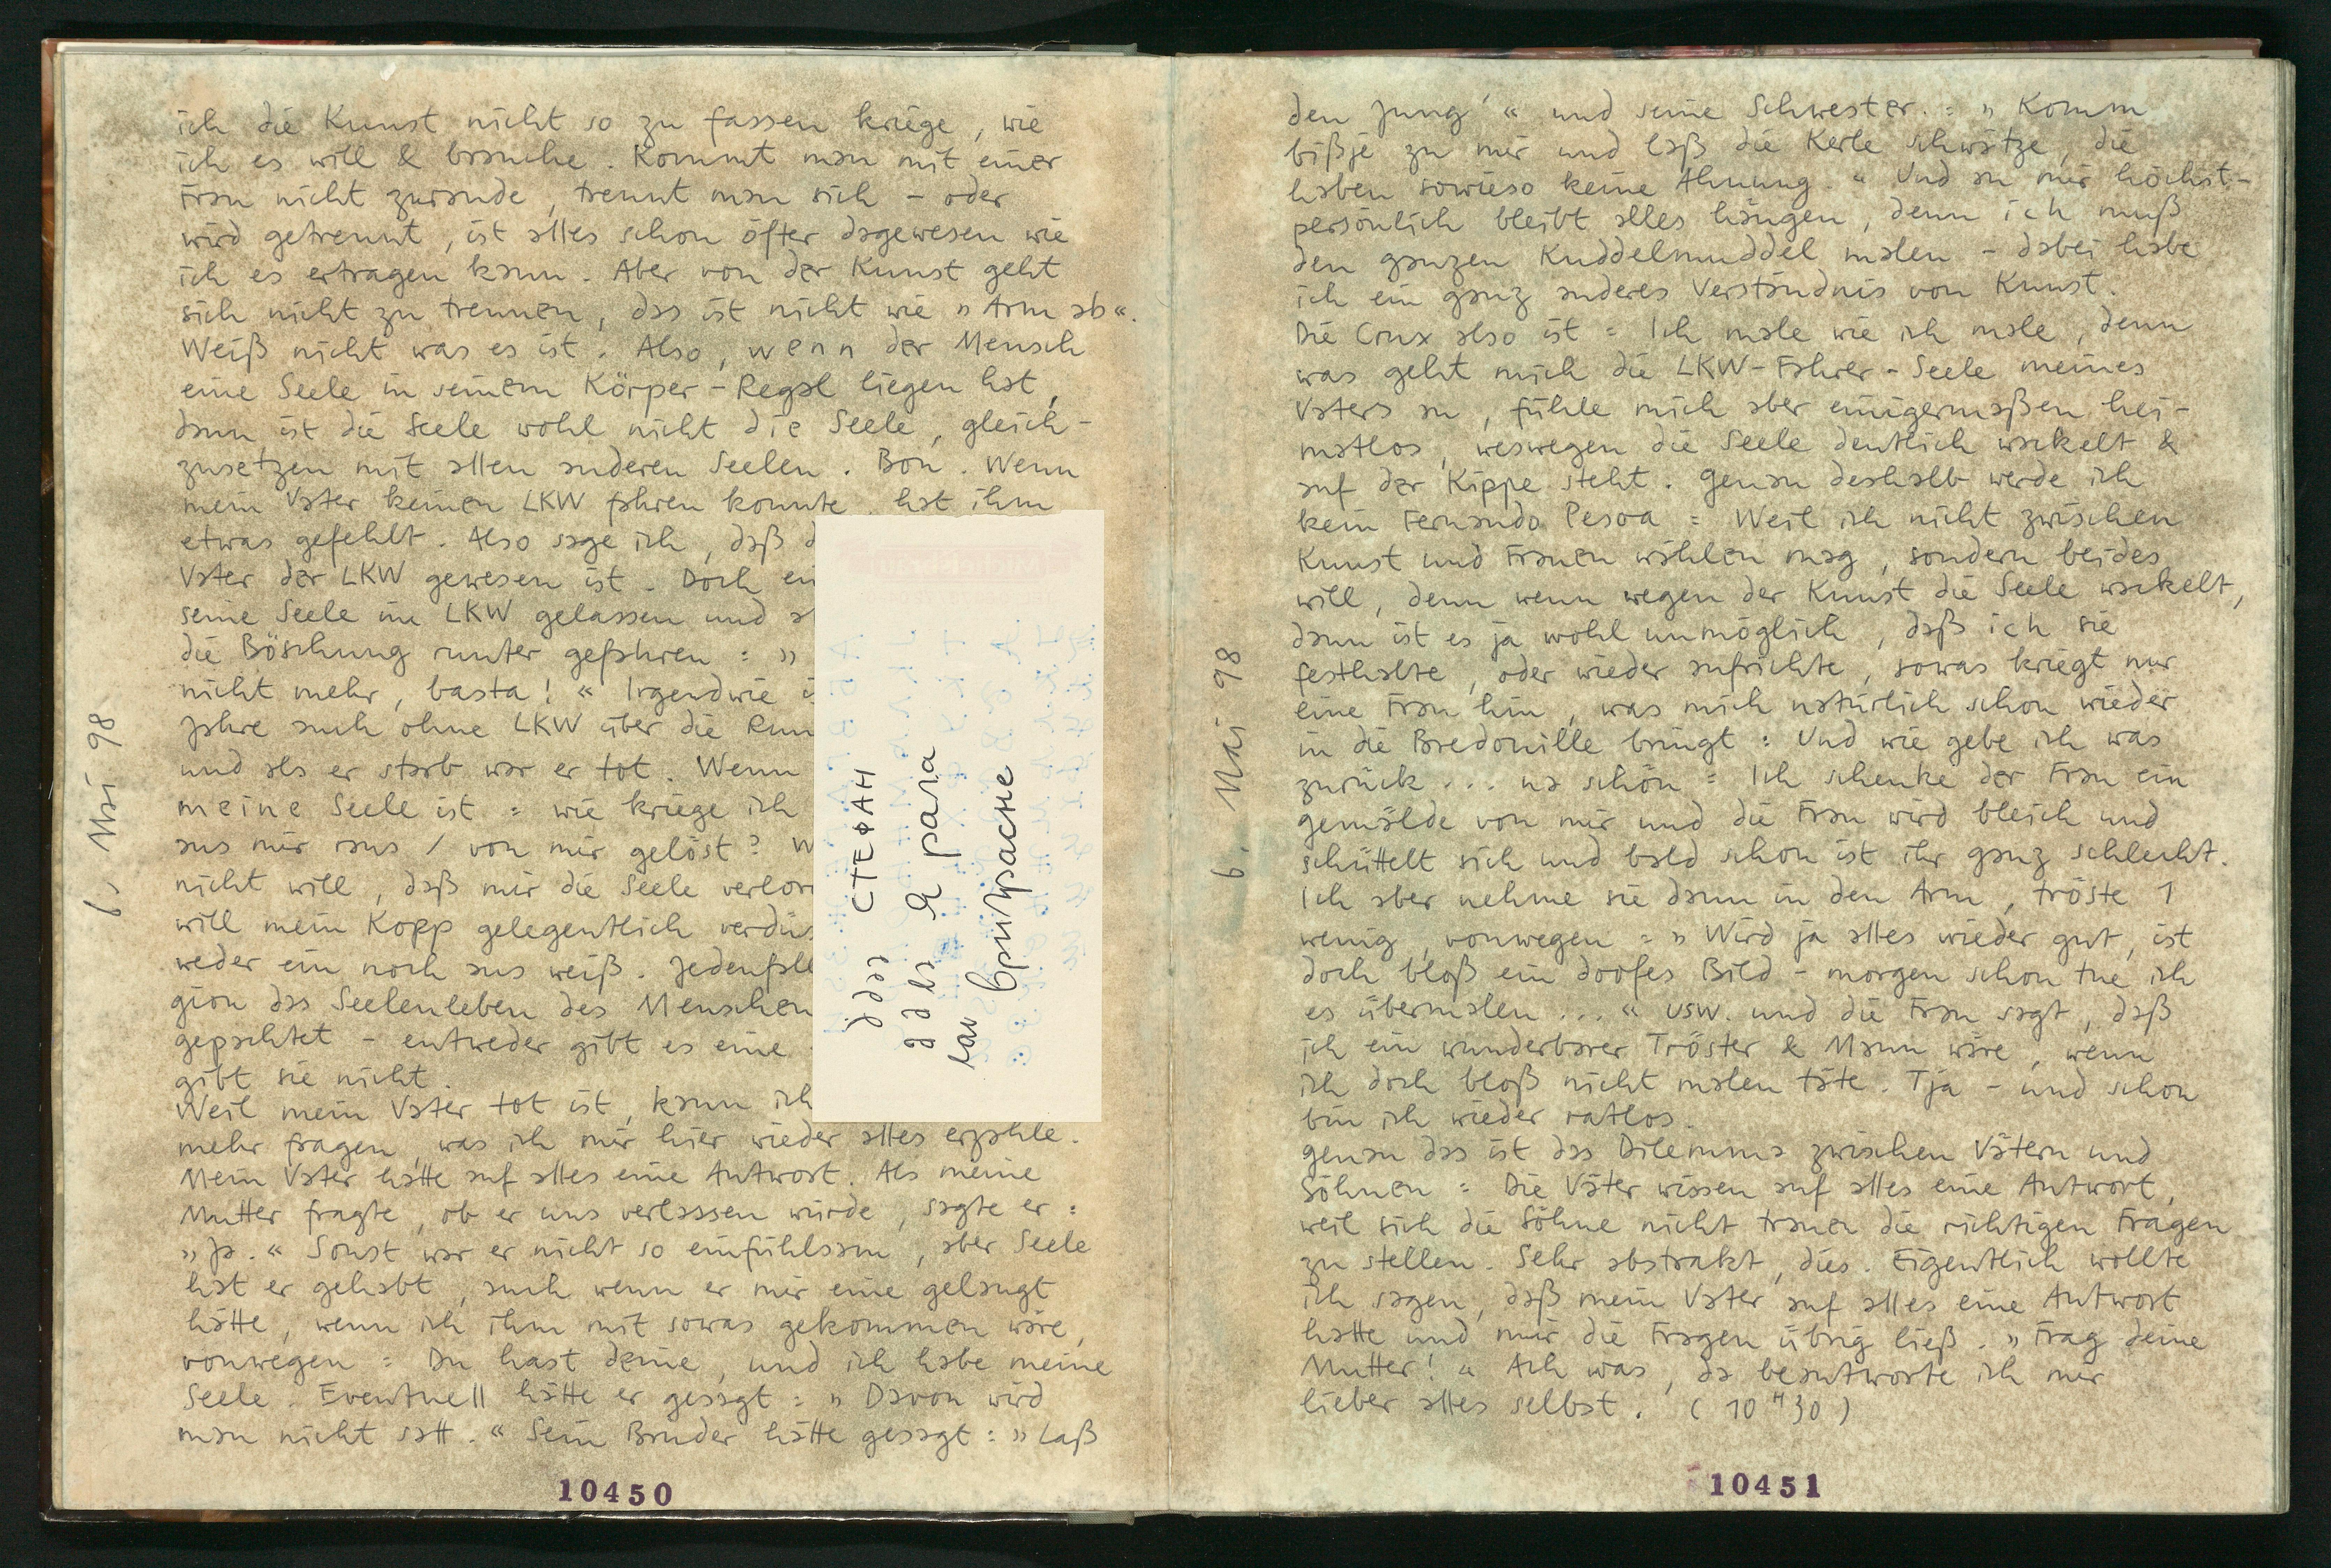 ich die Kunst nicht so zu fassen kriege, wie
ich es will & brauche. Kommt man mit einer
Frau nicht zurande, trennt man sich – oder
wird getrennt, ist alles schon öfter dagewesen wie
ich es ertragen kann. Aber von der Kunst geht
sich nicht zu trennen, das ist nicht wie »Arm ab«.
Weiß nicht was es ist. Also, wenn der Mensch
eine Seele in seinem Körper-Regal liegen hat,
dann ist die Seele wohl nicht die Seele, gleich-
zusetzen mit allen anderen Seelen. Bon. Wenn
mein Vater keinen LKW fahren konnte, hat ihm
etwas gefehlt. Also sage ich, daß
Vater der LKW gewesen ist. Doch
seine Seele im LKW gelassen und
die Böschung runter gefahren: »
nicht mehr, basta!« Irgendwie
Jahre auch ohne LKW über die
und als er starb war er tot. Wenn
meine Seele ist: wie kriege ich
aus mir raus / von mir gelöst?
nicht will, daß mir die Seele
will mein Kopp gelegentlich
weder ein noch aus weiß.
gion das Seelenleben des Menschen
gepachtet – entweder gibt es eine
gibt sie nicht.
Weil mein Vater tot ist, kann ich
mehr fragen, was ich mir hier wieder alles erzähle.
Mein Vater hatte auf alles eine Antwort. Als meine
Mutter fragte, ob er uns verlasssen würde, sagte er:
»Ja.« Sonst war er nicht so einfühlsam, aber Seele
hat er gehabt, auch wenn er mir eine gelangt
hätte, wenn ich ihm mit sowas gekommen wäre,
vonwegen: Du hast deine, und ich habe meine
Seele. Eventuell hätte er gesagt: »Davon wird
man nicht satt.« Sein Bruder hätte gesagt: »Laß
6. Mai 98
СТЕФАН
Я рала
10450
den Jung'« und seine Schwester: »Komm
bißje zu mir und laß die Kerle schwätze, die
haben sowieso keine Ahnung.« Und an mir höchst-
persönlich bleibt alles hängen, denn ich muß
den ganzen Kuddelmuddel malen – dabei habe
ich ein ganz anderes Verständnis von Kunst.
Die Crux also ist: Ich male wie ich male, denn
was geht mich die LKW-Fahrer-Seele meines
Vaters an, fühle mich aber einigermaßen hei-
matlos, weswegen die Seele deutlich wackelt &
auf der Kippe steht. Genau deshalb werde ich
kein Fernando Pesoa: Weil ich nicht zwischen
Kunst und Frauen wählen mag, sondern beides
will, denn wenn wegen der Kunst die Seele wackelt,
dann ist es ja wohl unmöglich, daß ich sie
festhalte, oder wieder aufrichte, sowas kriegt nur
eine Frau hin, was mich natürlich schon wieder
in die Bredouille bringt: Und wie gebe ich was
zurück... na schön: Ich schenke der Frau ein
Gemälde von mir und die Frau wird bleich und
schüttelt sich und bald schon ist ihr ganz schlecht.
Ich aber nehme sie dann in den Arm, tröste 1
wenig, vonwegen: »Wird ja alles wieder gut, ist
doch bloß ein doofes Bild – morgen schon tue ich
es übermalen...« usw. und die Frau sagt, daß
ich ein wunderbarer Tröster & Mann wäre, wenn
ich doch bloß nicht malen täte. Tja – und schon
bin ich wieder ratlos.
Genau das ist das Dilemma zwischen Vätern und
Söhnen: Die Väter wissen auf alles eine Antwort,
weil sich die Söhne nicht trauen die richtigen Fragen
zu stellen. Sehr abstrakt, dies. Eigentlich wollte
ich sagen, daß mein Vater auf alles eine Antwort
hatte und mir die Fragen übrig ließ. »Frag deine
Mutter!« Ach was, da beantworte ich mir
lieber alles selbst. (10 H 30)
6. Mai 98
10451